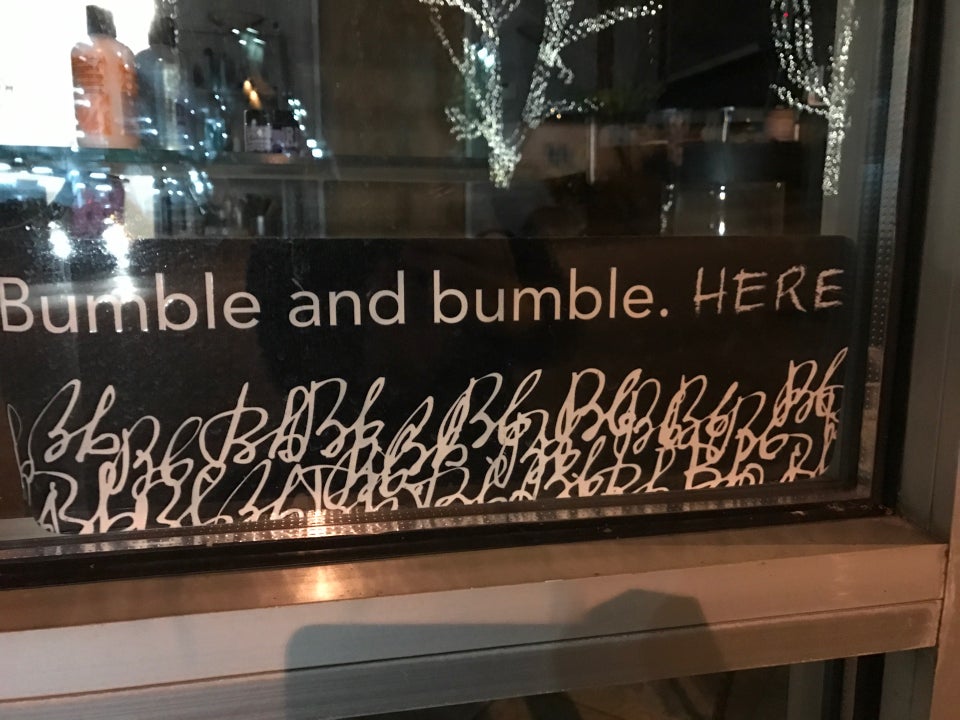 Bumble and bumble. HERE